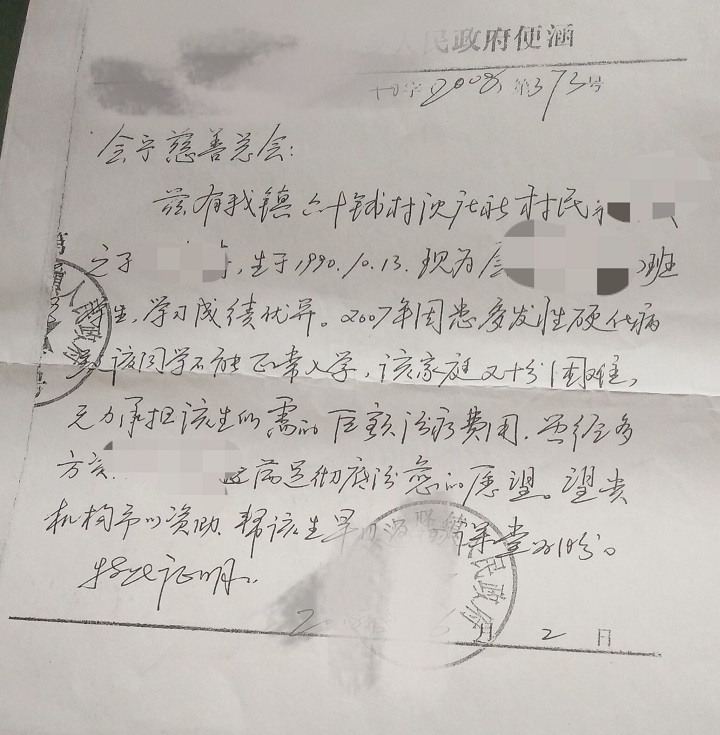 人民政府便涵
字2008第373号
会宁慈善总会:
兹有我镇六十铺村沈家社村民
之子,生于1990.10.13.现为
班
学生,学习成绩优异。2007年因患多发性硬化病
该同学不能正常入学,该家庭又十分困难,
无力承担该生所需的巨额治疗费用.曾经多
方
满足彻底治愈的愿望。望贵
机构予以资助,帮该生早
课堂为盼。
特此证明。
月2日
人民政府
民政府